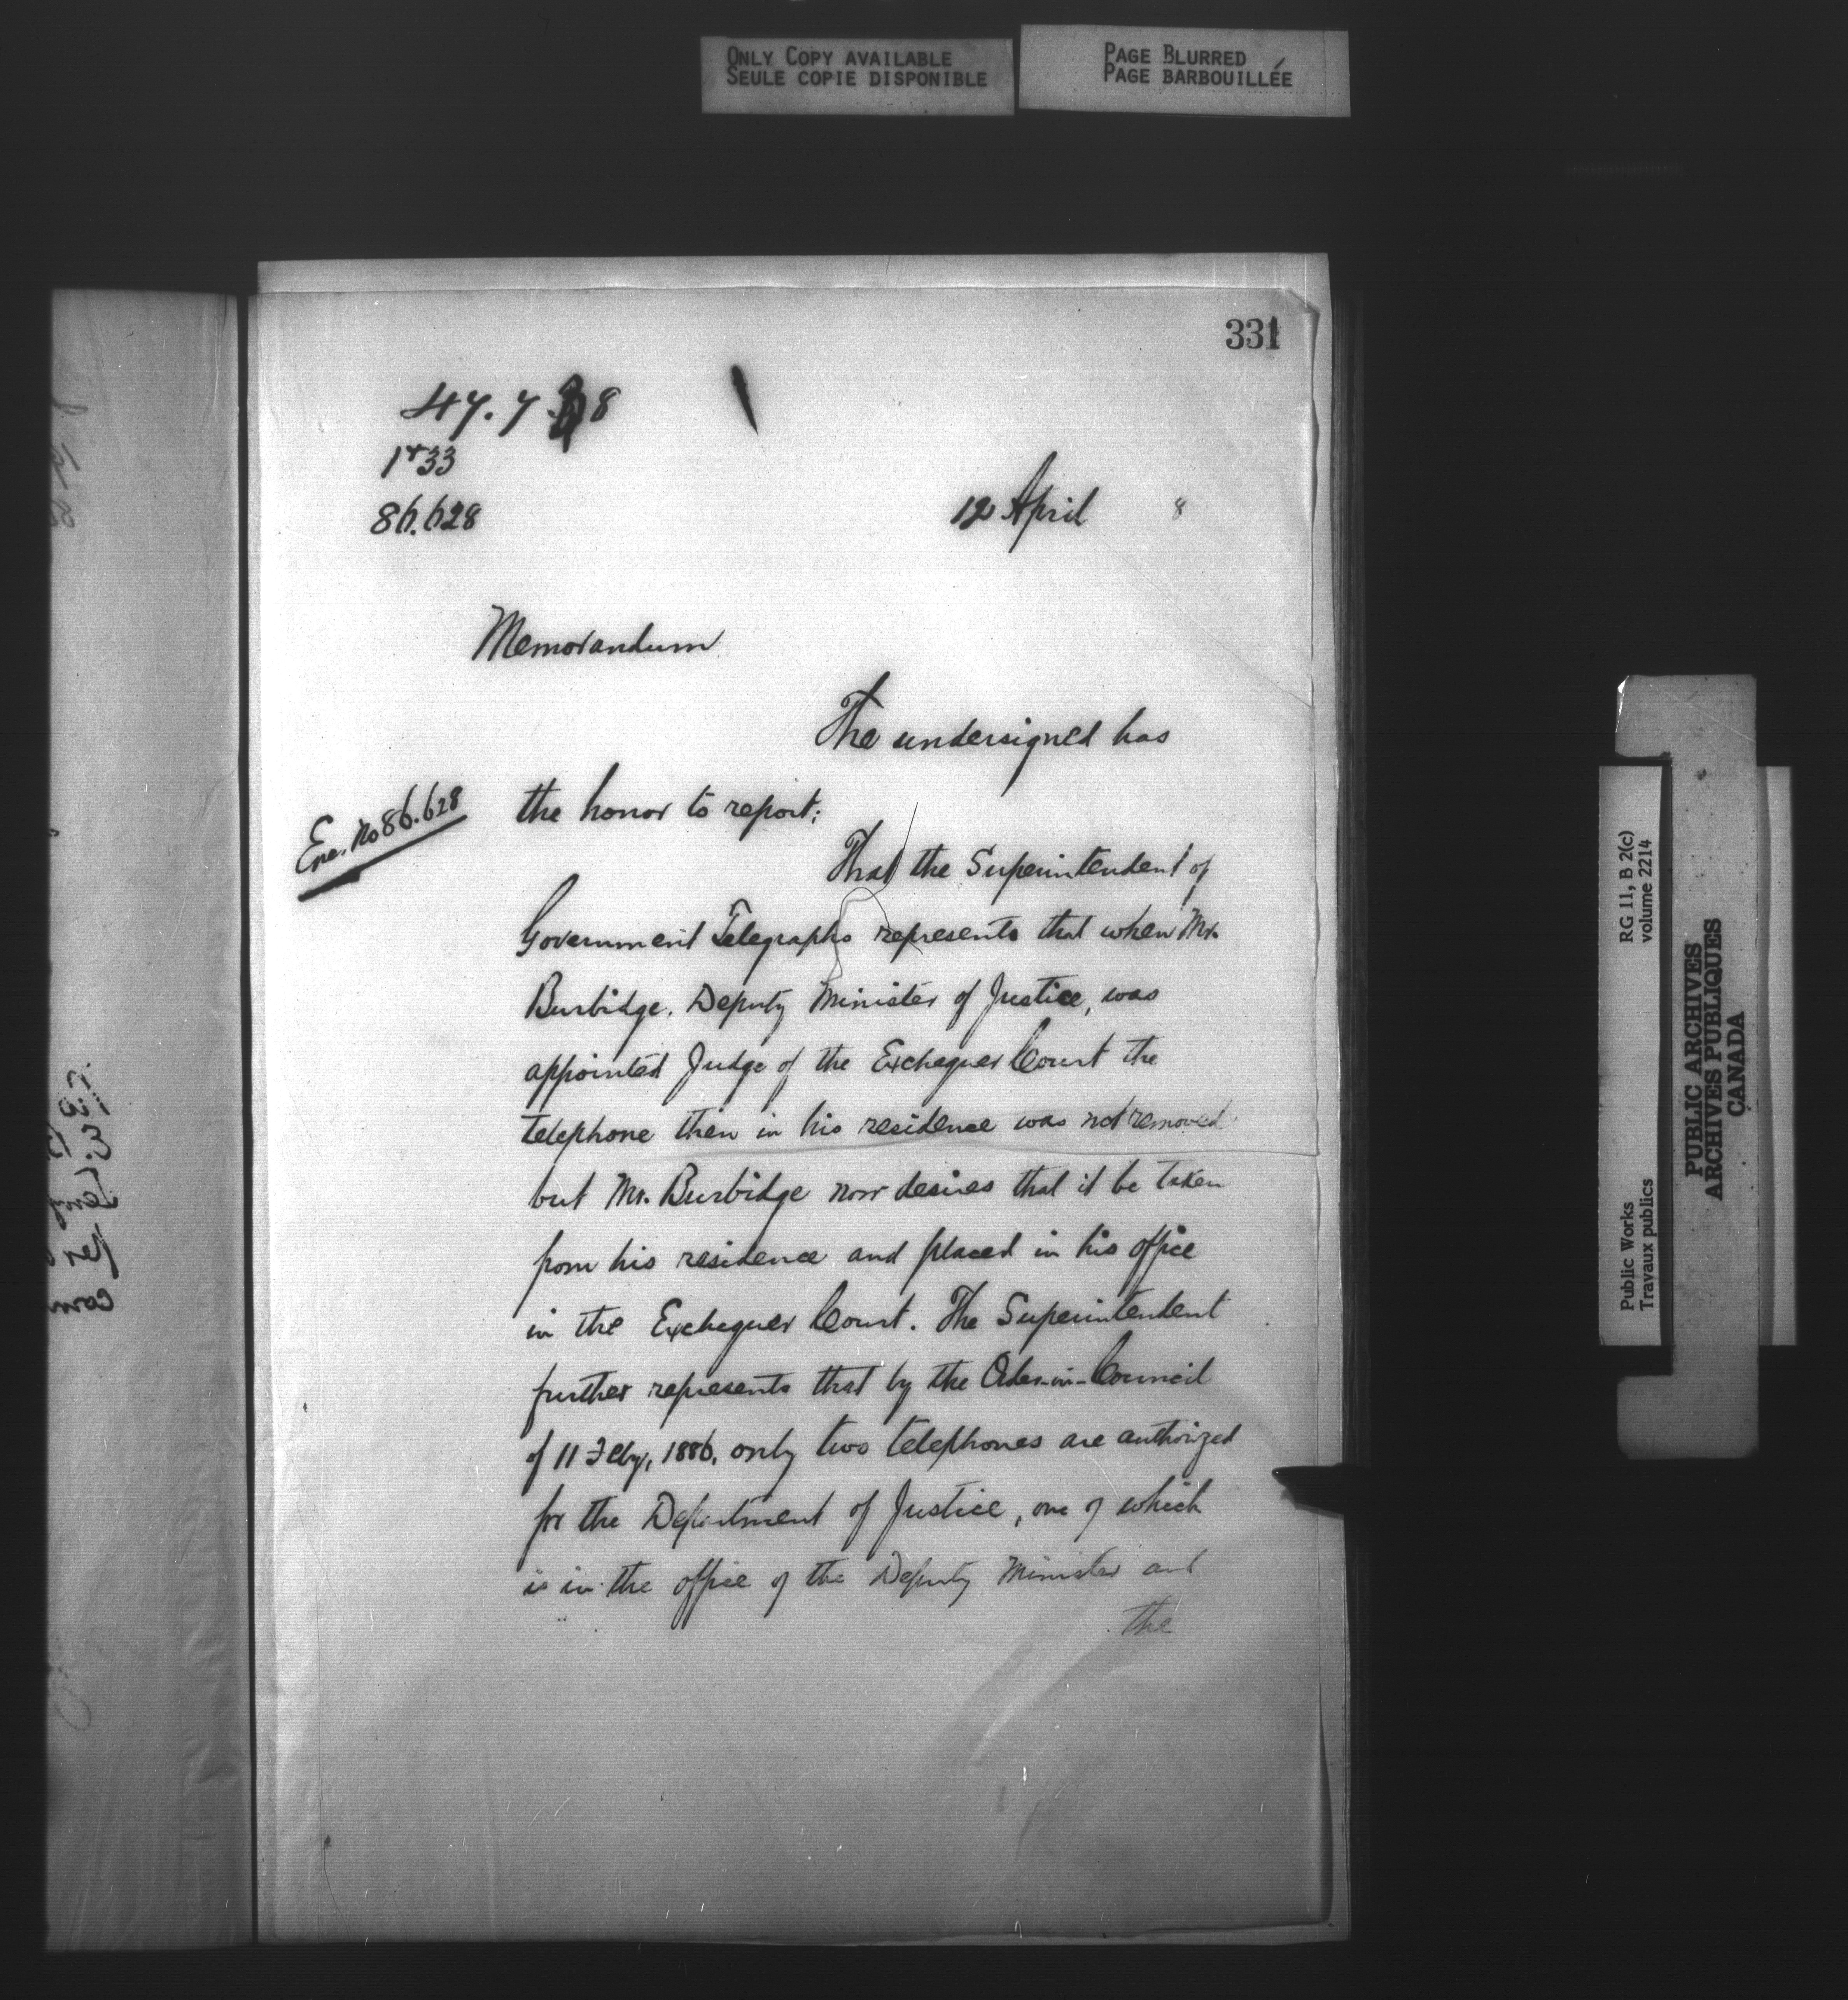 ONLY COPY AVAILABLE
SEULE COPIE DISPONIBLE
PAGE BLURRED
PAGE BARBOUILLÉE
331
86.628
12 April 8
Memorandum
The undersigned has
the honor to report:
Enc. No 86.628
That the Superintendent of
Government Telegraphs represents that when Mr.
Burbidge, Deputy Minister of Justice, was
appointed Judge of the Exchequer Court the
telephone then in his residence was not removed
but Mr. Burbidge now desires that it be taken
from his residence and placed in his office
in the Exchequer Court. The Superintendent
further represents that by the Order-in-Council
of 11 Feby, 1886, only two telephones are authorized
for the Department of Justice, one of which
is in the office of the Deputy Minister and
the
Public Works
Travaux publics
RG 11, B 2(c)
volume 2214
PUBLIC ARCHIVES
ARCHIVES PUBLIQUES
CANADA